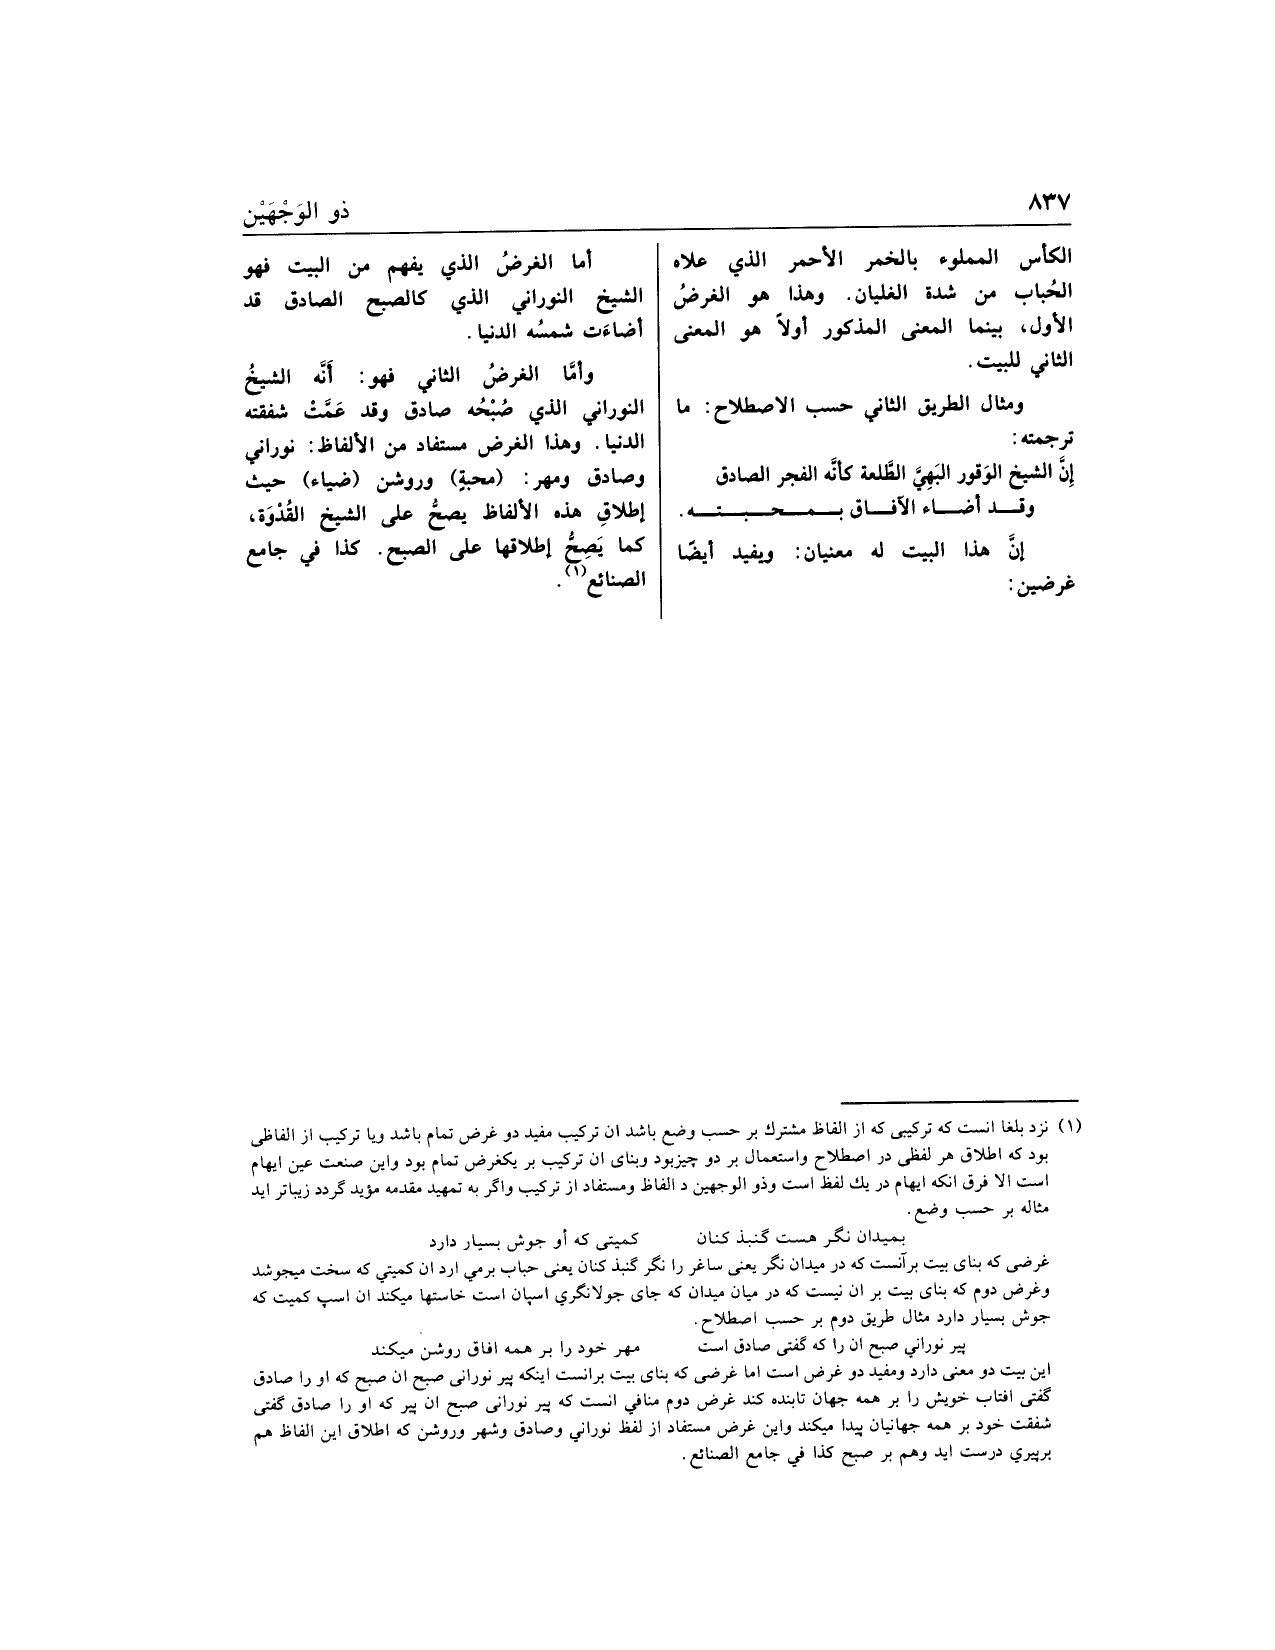 ٨٣٧
ذو الوَجْهَيْن
الكأس المملوء بالخمر الأحمر الذي علاه
الحُباب من شدة الغليان. وهذا هو الغرضُ
الأول، بينما المعنى المذكور أولاً هو المعنى
الثاني للبيت.
ومثال الطريق الثاني حسب الاصطلاح: ما
ترجمته:
إنَّ الشيخ الوَقور البَهِيَّ الطَّلعة كأنَّه الفجر الصادق
وقـــد أضـــاء الآفـــاق بـــمـــحـــبـــتـــه.
إنَّ هذا البيت له معنيان: ويفيد أيضًا
غرضين:
أما الغرضُ الذي يفهم من البيت فهو
الشيخ النوراني الذي كالصبح الصادق قد
أضاءَت شمسُه الدنيا.
وأمَّا الغرضُ الثاني فهو: أنَّه الشيخُ
النوراني الذي صُبْحُه صادق وقد عَمَّتْ شفقته
الدنيا. وهذا الغرض مستفاد من الألفاظ: نوراني
وصادق ومهر: (محبةٍ) وروشن (ضياء) حيث
إطلاقِ هذه الألفاظ يصحُّ على الشيخ القُدْوَة،
كما يَصِحُّ إطلاقها على الصبح. كذا في جامع
الصنائع(١).
(١) نزد بلغا انست كه تركيبى كه از الفاظ مشترك بر حسب وضع باشد ان تركيب مفيد دو غرض تمام باشد ويا تركيب از الفاظى
بود كه اطلاق هر لفظى در اصطلاح واستعمال بر دو چيزبود وبناى ان تركيب بر يكغرض تمام بود واين صنعت عين ايهام
است الا فرق انكه ايهام در يك لفظ است وذو الوجهين د الفاظ ومستفاد از تركيب واگر به تمهيد مقدمه مؤيد گردد زيباتر ايد
مثاله بر حسب وضع.
بميدان نگر هست گنبذ كنان كميتى كه أو جوش بسيار دارد
غرضى كه بناى بيت برآنست كه در ميدان نگر يعنى ساغر را نگر گنبذ كنان يعنى حباب برمي ارد ان كميتي كه سخت ميجوشد
وغرض دوم كه بناى بيت بر ان نيست كه در ميان ميدان كه جاى جولانگري اسپان است خاستها ميكند ان اسپ كميت كه
جوش بسيار دارد مثال طريق دوم بر حسب اصطلاح.
پير نوراني صبح ان را كه گفتى صادق است مهر خود را بر همه افاق روشن ميكند
اين بيت دو معنى دارد ومفيد دو غرض است اما غرضى كه بناى بيت برانست اينكه پير نورانى صبح ان صبح كه او را صادق
گفتى افتاب خويش را بر همه جهان تابنده كند غرض دوم منافي انست كه پير نورانى صبح ان پير كه او را صادق گفتى
شفقت خود بر همه جهانيان پيدا ميكند واين غرض مستفاد از لفظ نوراني وصادق وشهر وروشن كه اطلاق اين الفاظ هم
برپيري درست ايد وهم بر صبح كذا في جامع الصنائع.